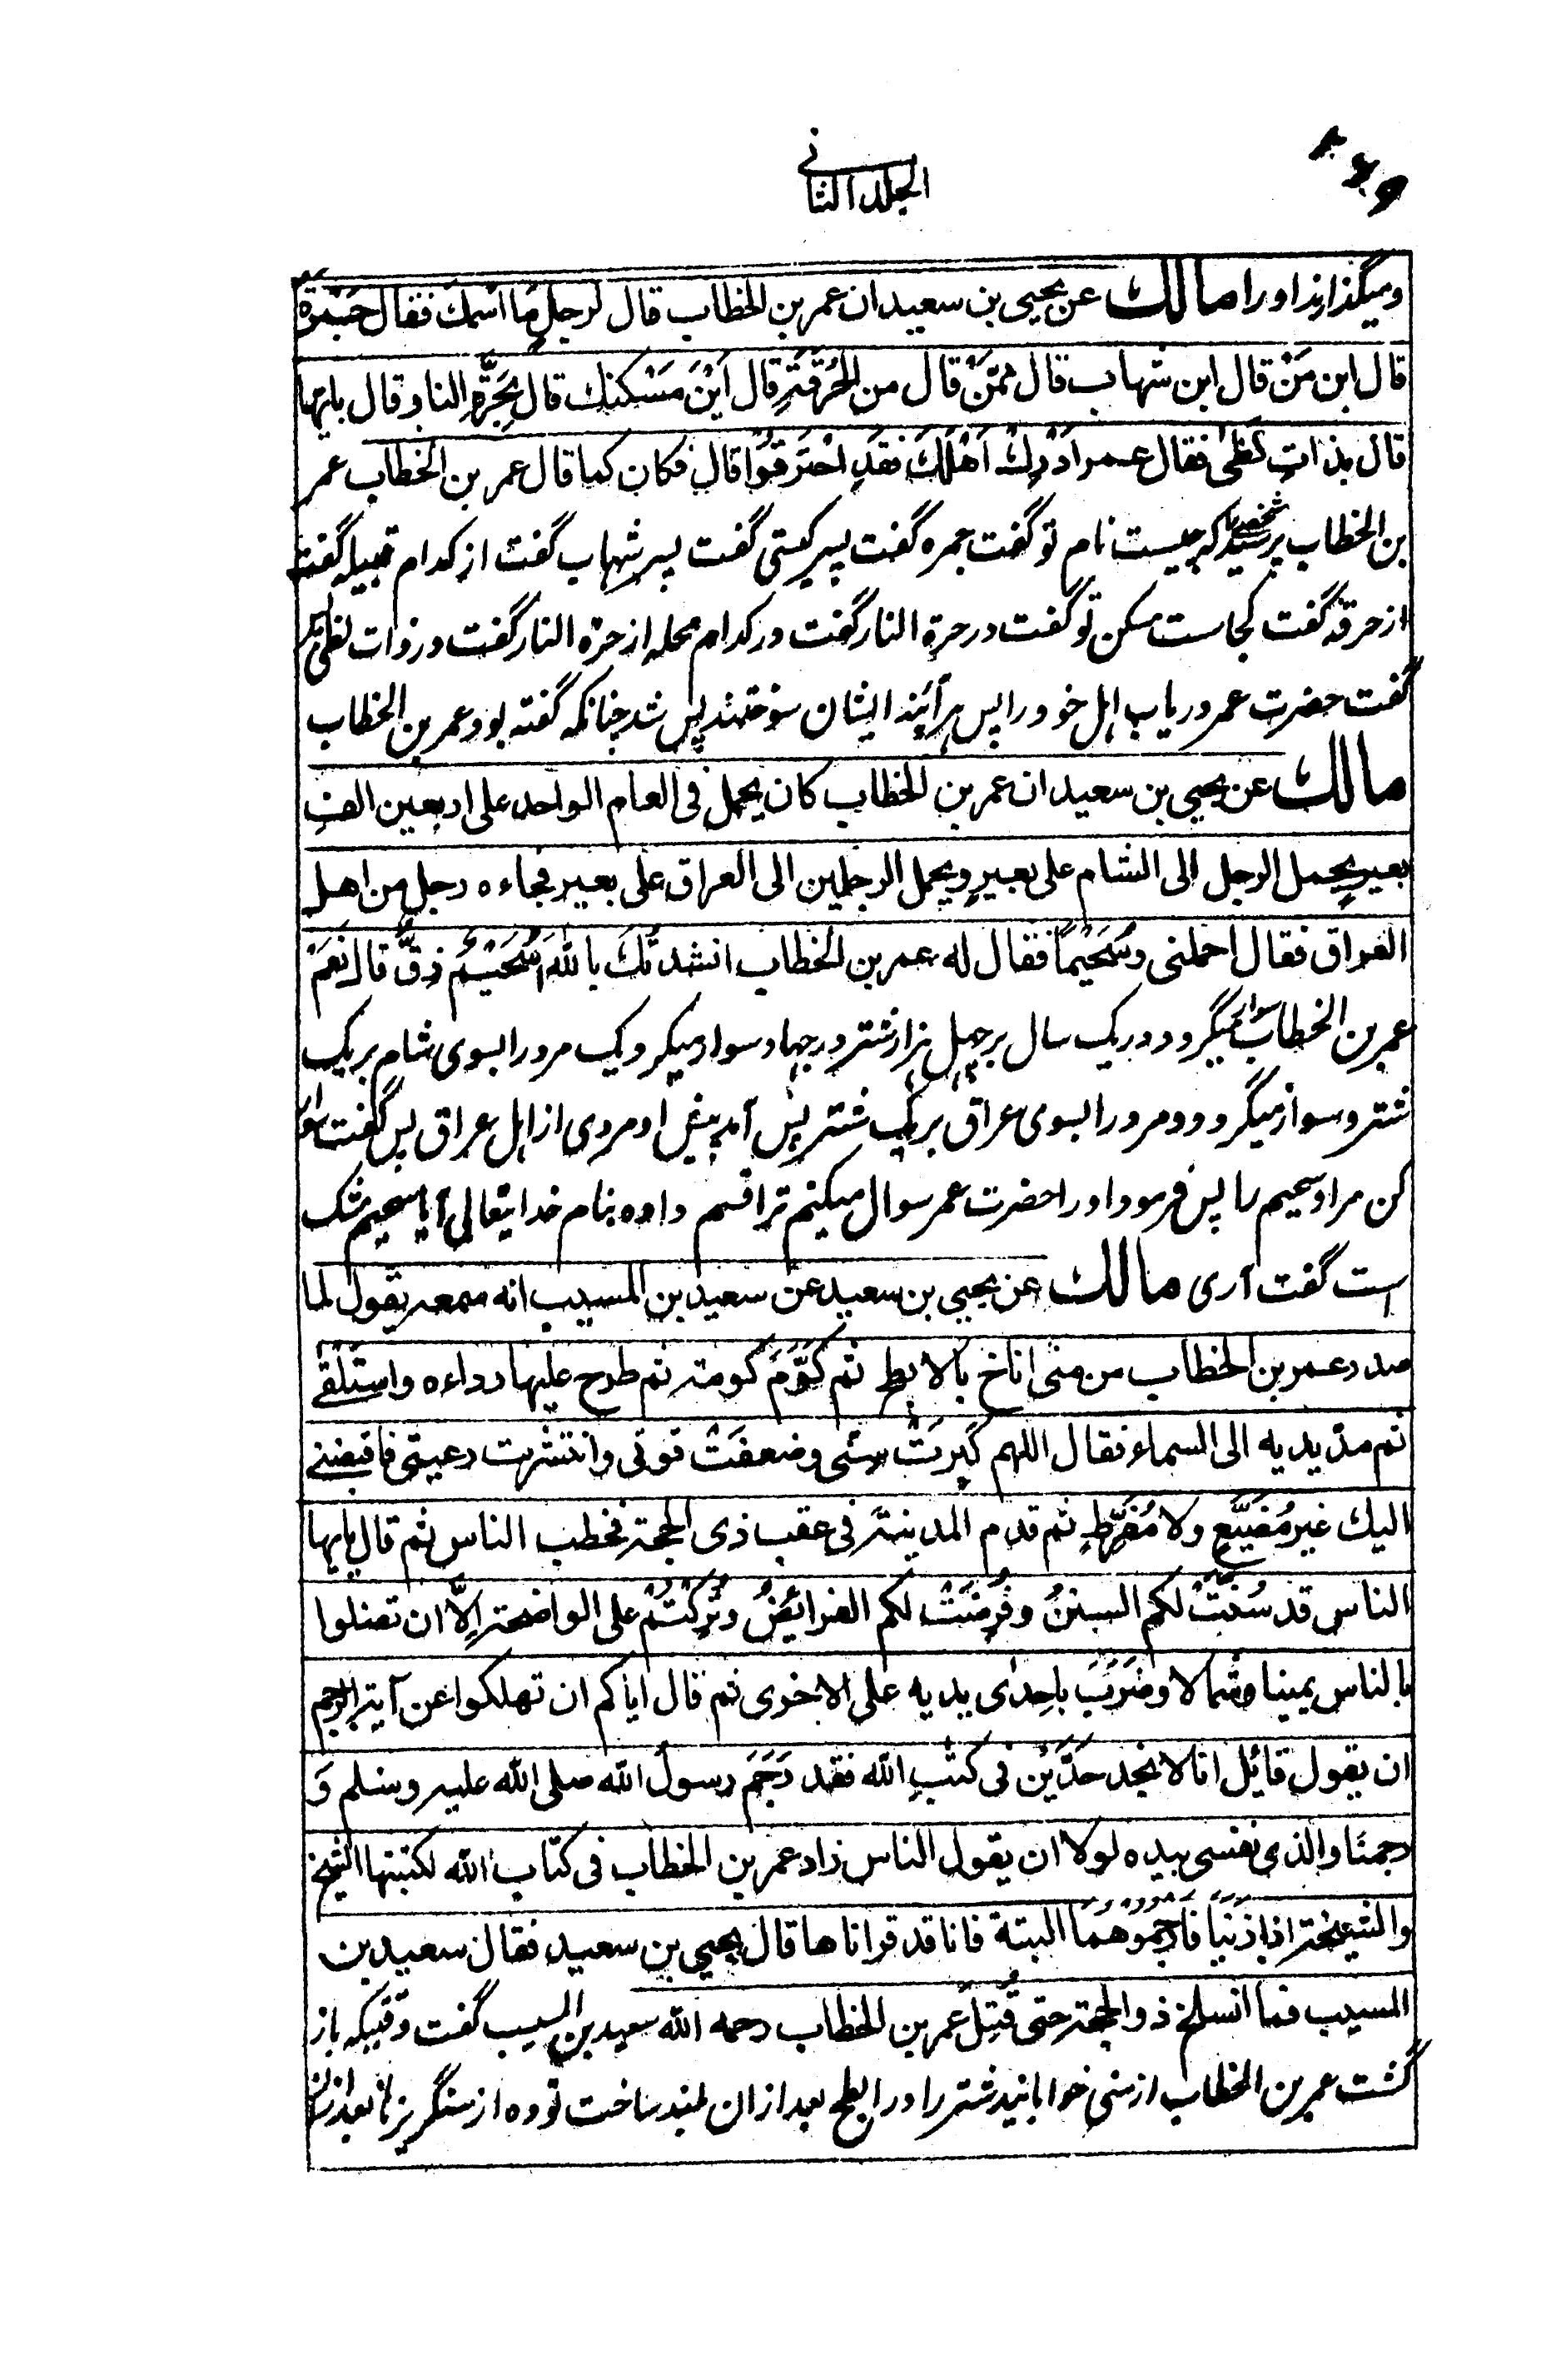 الجلد الثانی
ومیگذارند او را مالك عن یحیی بن سعید ان عمر بن الخطاب قال لرجلٍ مَا اسْمُكَ فقال جَمْرَة
قال ابن مَنْ قال ابن شهاب قال ممَّنْ قال من الحُرَقَةِ قال اَیْنَ مَسْكنك قال بِحَرَّةِ النار قال بایها
قال بذاتِ لَظٰی فقال عمر اَدْرِكْ اَهْلَكَ فَقَدِ احْتَرَقُوْا قال فكان كما قال عمر بن الخطاب عمر
بن الخطاب پرسید شخصی را که چیست نام تو گفت جمره گفت پسر کیستی گفت پسر شهاب گفت از کدام قبیله گفت
از حرقه گفت کجاست مسکن تو گفت در حرة النار گفت در کدام محله از حرة النار گفت در ذات لظی
گفت حضرت عمر دریاب اہل خود را پس ہرآئینہ ایشان سوختند پس شد چنانکه گفته بود عمر بن الخطاب
مالك عن یحیی بن سعید ان عمر بن الخطاب كان یحمل فی العام الواحد علی اربعین الف
بعیرٍ یحمل الرجل الی الشام علی بعیرٍ ویحمل الرجلین الی العراق علی بعیر فجاءه رجل من اهل
العراق فقال احملنی وسُحَیْمًا فقال له عمر بن الخطاب انشدتُكَ باللهِ اَسُحَیْمٌ زِقٌّ قال نَعَمْ
عمر بن الخطاب سوار میکرد در یک سال بر چہل ہزار شتر در جہاد سوار میکرد یک مرد را بسوی شام بر یک
شتر و سوار میکرد دو مرد را بسوی عراق بر یک شتر پس آمد پیش او مردی از اہل عراق پس گفت سوار
کن مرا و سحیم را پس فرمود او را حضرت عمر سوال میکنم ترا قسم داده بنام خدایتعالی آیا سحیم مشک
است گفت آری مالك عن یحیی بن سعید عن سعید بن المسیب انه سمعه یقول لما
صدر عمر بن الخطاب من منی اناخ بالابطح ثم كَوَّمَ كومة ثم طرح علیها رداءه واستلقے
ثم مدّ یدیه الی السماء فقال اللهم كَبِرَتْ سِنّی وضعفَتْ قوتی وانتشرت رعیتی فاقبضنے
الیك غیر مُضَیَّعٍ ولا مُفَرِّطٍ ثم قدم المدینة فی عقب ذی الحجة فخطب الناس ثم قال یایها
الناس قد سُنَّتْ لكم السننُ وفُرِضَتْ لكم الفرائِضُ وتُرِكْتُمْ علی الواضحة اِلَّا ان تضلوا
بالناس یمینا وشمالا وضَرَبَ باِحدٰی یدیه علی الاخری ثم قال ایاكم ان تهلكوا عن آیة الرجم
ان یقول قائل انا لا نجد حَدَّیْن فی كتٰبِ الله فقد رَجَمَ رسولُ الله صلی الله علیه وسلم وَ
رجمنَا والذی نفسی بیده لولا ان یقول الناس زاد عمر بن الخطاب فی كتاب الله لكتبتها الشیخ
والشیخة اذا زَنَیَا فَارْجُمُوْهُمَا البتة فانا قد قراناها قال یحیی بن سعید فقال سعید بن
المسیب فما انسلخ ذو الحجة حتی قُتِلَ عمر بن الخطاب رحمه الله سعید بن المسیب گفت وقتیکه باز
گشت عمر بن الخطاب از منی خوابانید شتر را در ابطح بعد ازان بلند ساخت توده از سنگریزہا